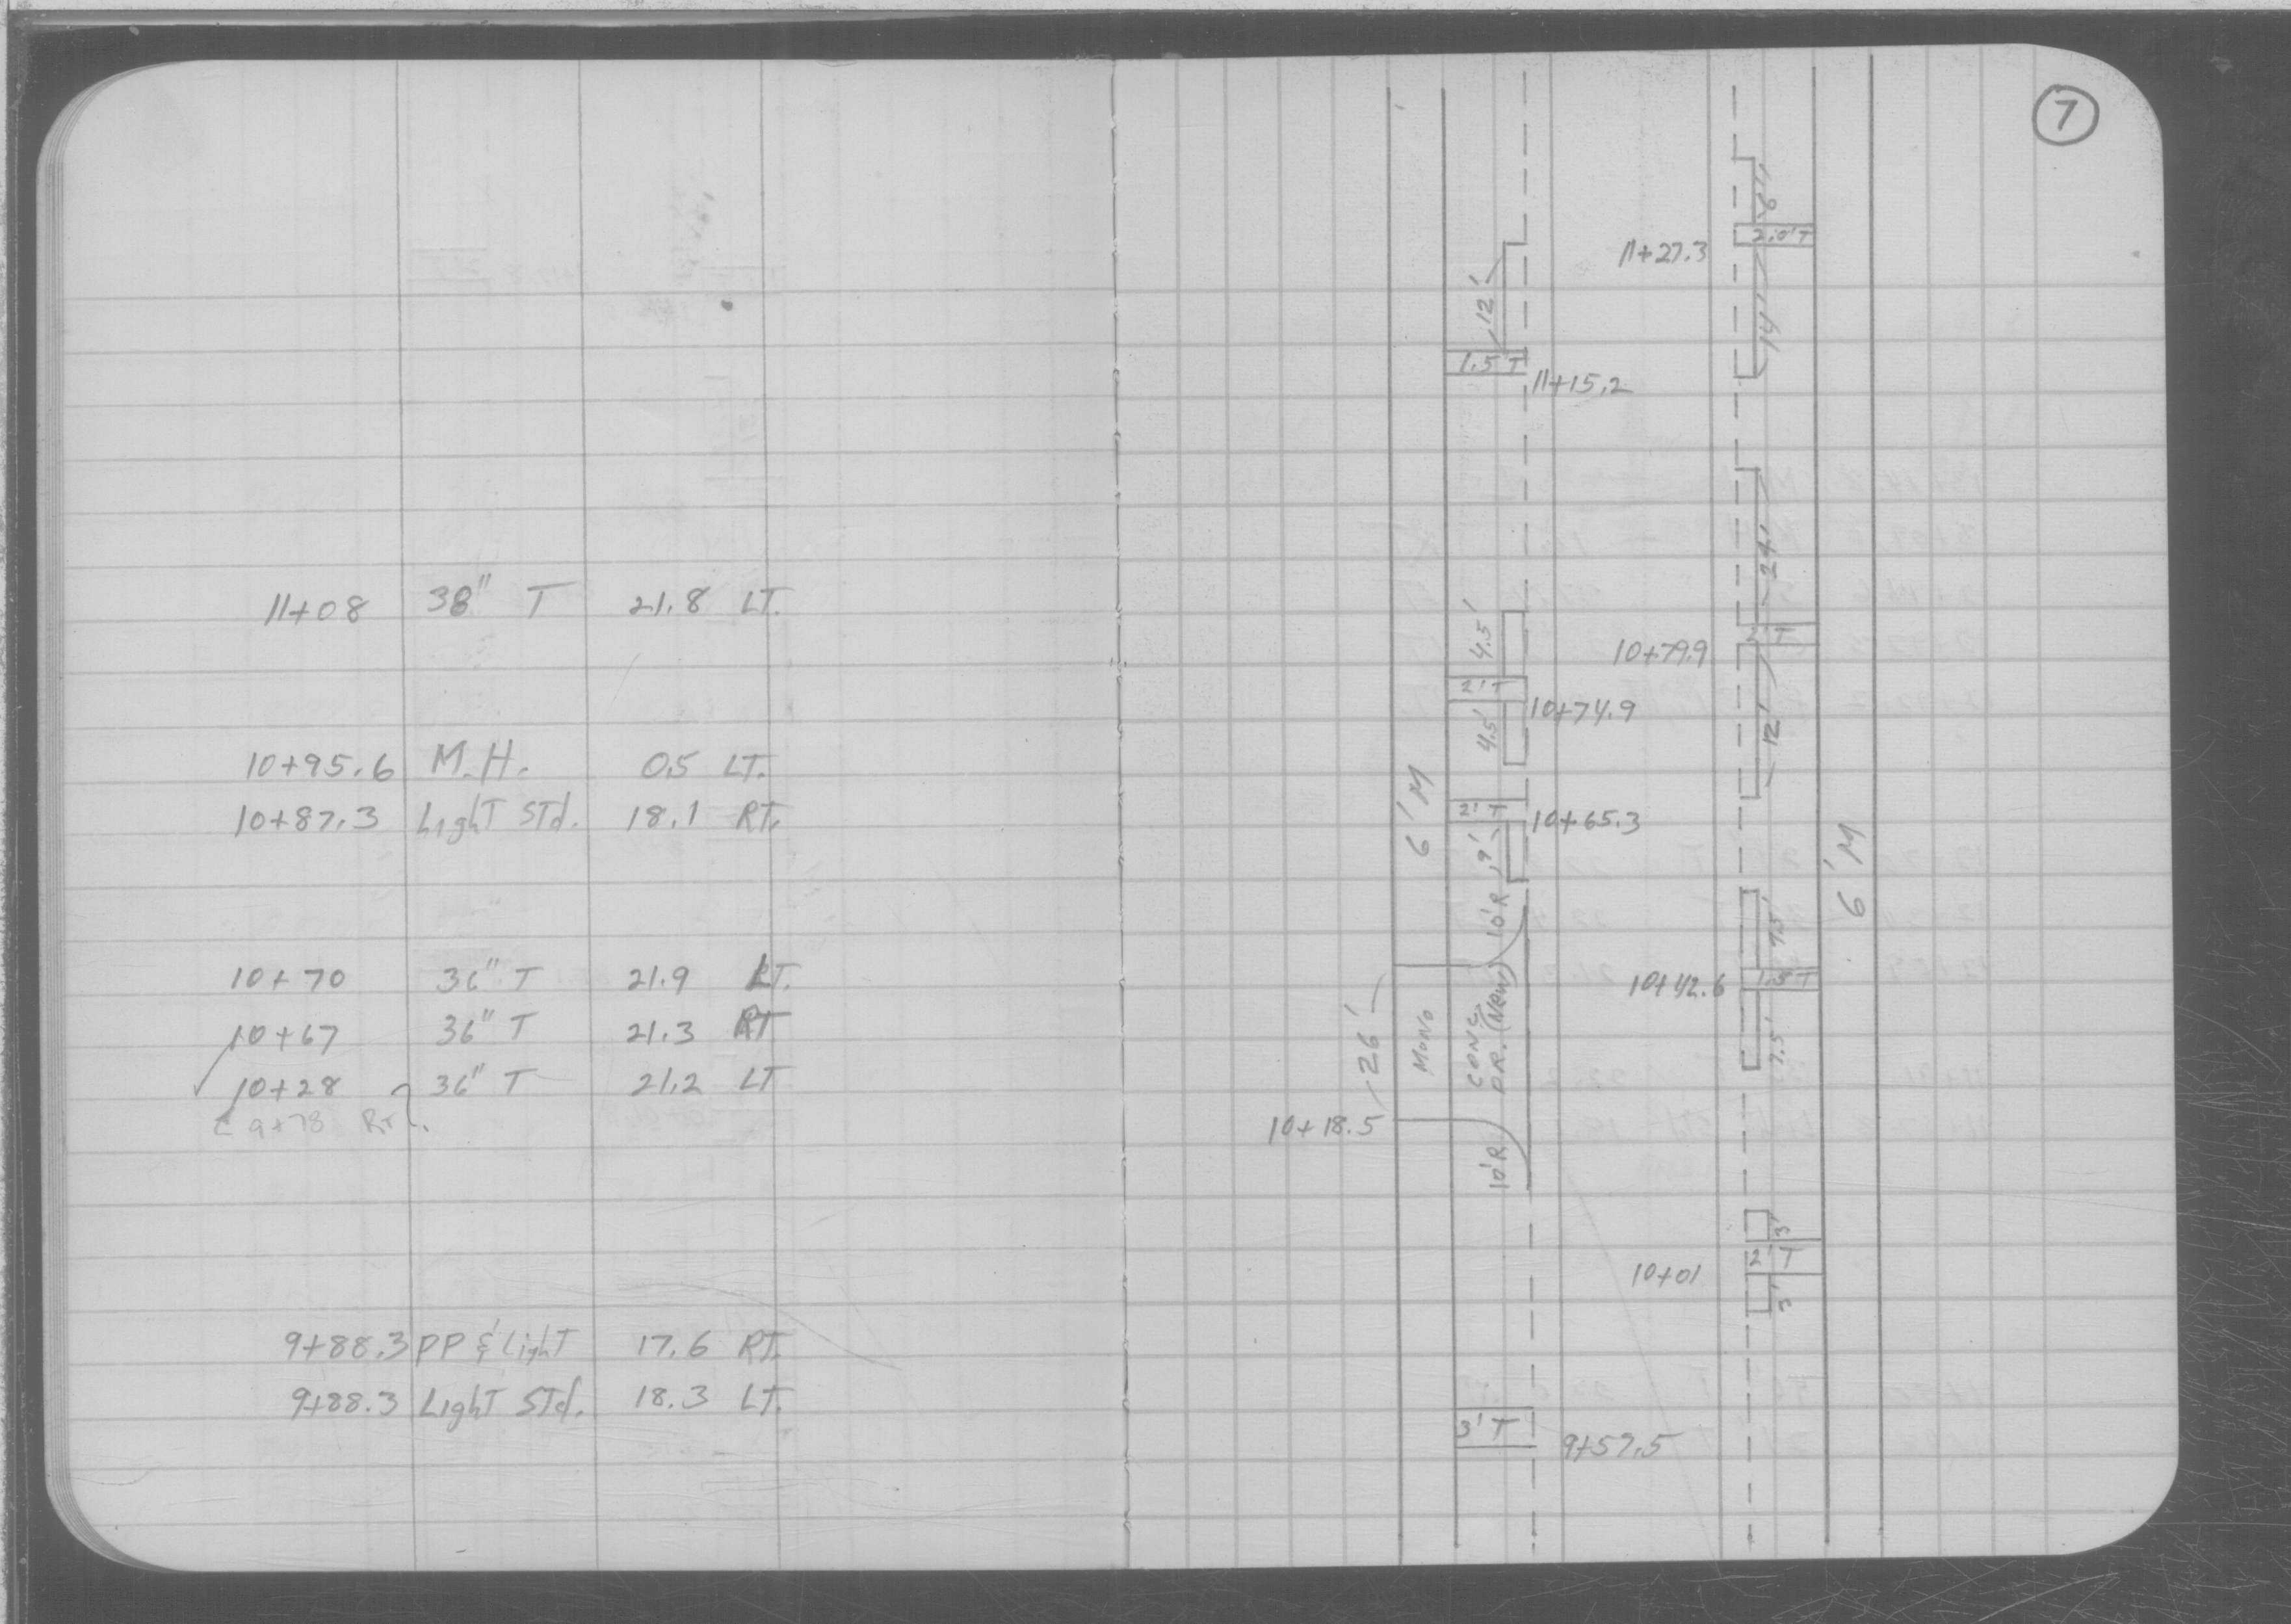 7
11+08 38" T 21.8 LT.
10+95.6 M.H. 0.5 LT.
10+87.3 LighT STd. 18.1 RT.
10+70 36" T 21.9 LT.
10+67 36" T 21.3 RT
10+28 36" T 21.2 LT
9+78 RT
9+88.3 PP & LighT 17.6 RT.
9+88.3 LighT STd. 18.3 LT.
2.0' T
11+27.3
12'
14'
1.5' T
11+15.2
24'
4.5'
2' T
10+79.9
2' T
10+74.9
4.5'
12'
6' M
2' T
10+65.3
9'
6' M
10' R
7.5'
1.5' T
10+42.6
26'
MONO
CONC.
DR. (New)
7.5'
10+18.5
10' R
3'
2' T
10+01
3'
3' T
9+57.5